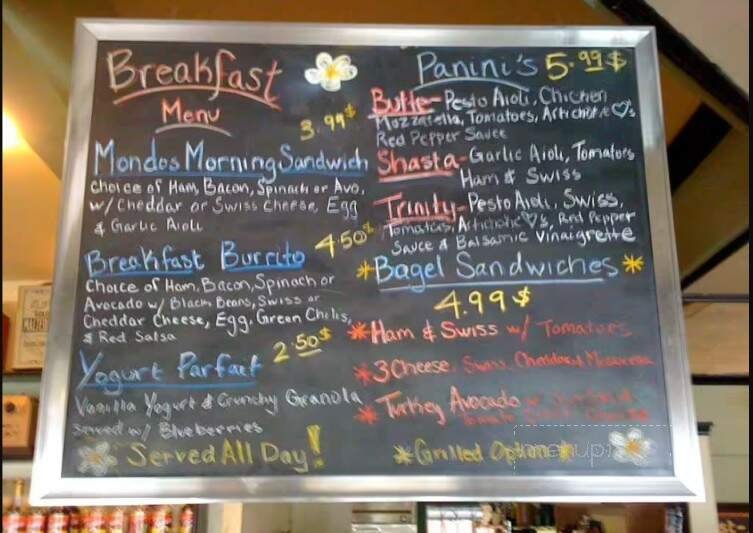 Breakfast
Menu
3.99$
Mondos Morning Sandwich
Choice of Ham, Bacon, Spinach or Avo,
w/ Cheddar or Swiss Cheese, Egg
& Garlic Aioli
Breakfast Burrito 4.50$
Choice of Ham, Bacon, Spinach or
Avocado w/ Black Beans, Swiss or
Cheddar Cheese, Egg, Green Chilis,
& Red Salsa
2.50$
Yogurt Parfait
Vanilla Yogurt & Crunchy Granola
Served w/ Blueberries
Served All Day!
Panini's 5.99$
Butte- Pesto Aioli, Chicken
Mozzarella, Tomatoes, Artichoke ♡'s
Red Pepper Sauce
Shasta- Garlic Aioli, Tomatoes
Ham & Swiss
Trinity- Pesto Aioli, Swiss,
Tomatoes, Artichoke ♡'s, Red Pepper
Sauce & Balsamic Vinaigrette
*Bagel Sandwiches*
4.99$
*Ham & Swiss w/ Tomatoes
*3 Cheese, Swiss, Cheddar &
*Turkey Avocado w/
*Grilled Option*
menupix